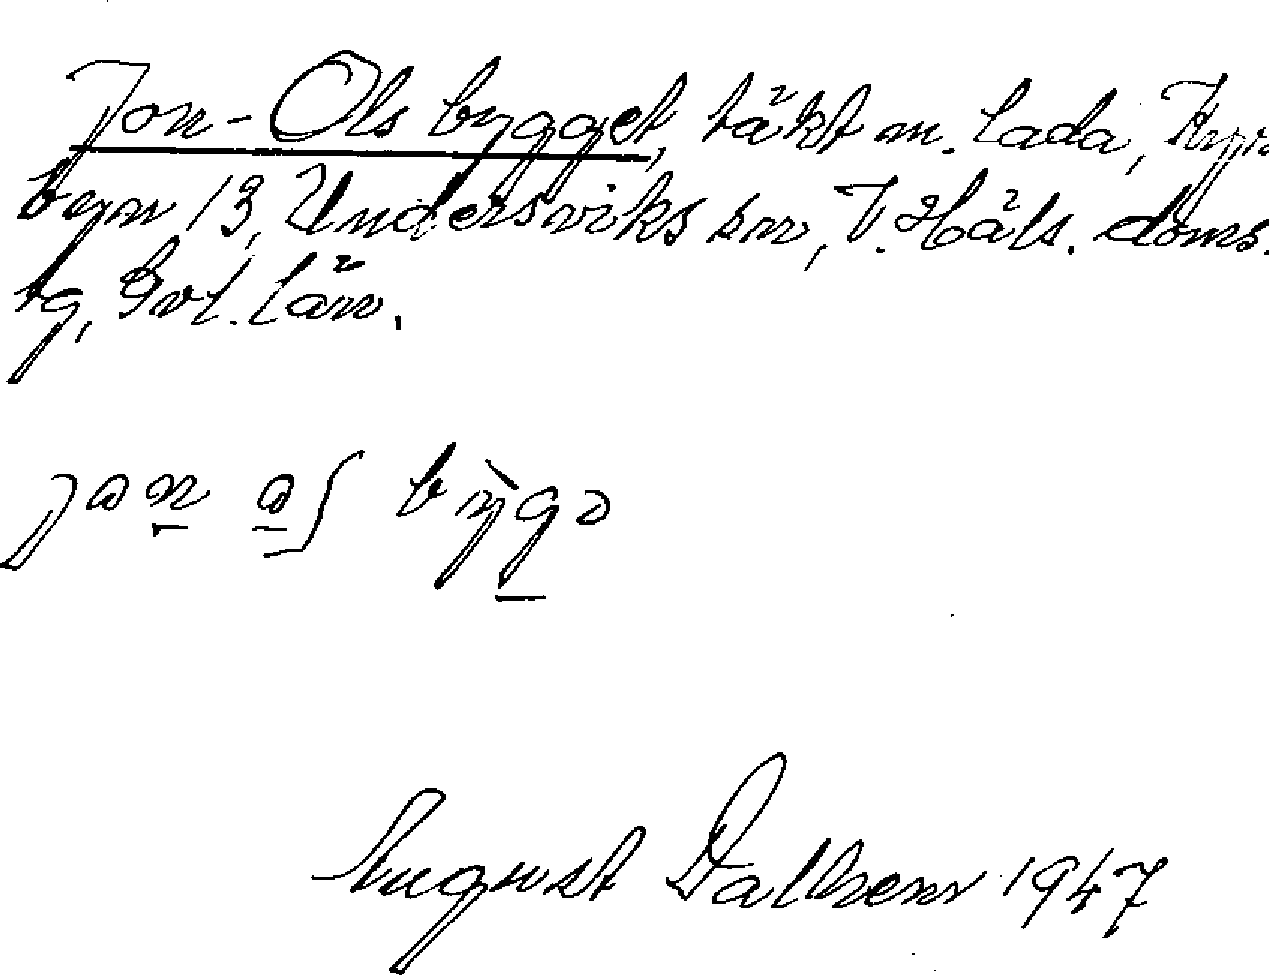 Jon-Ols bygget, täkt m. lada, Kyrk
byn 13, Undersviks sn, V. Häls. doms.
tg, Gvl. län.
jon os bỳgə
August Dalhem 1947